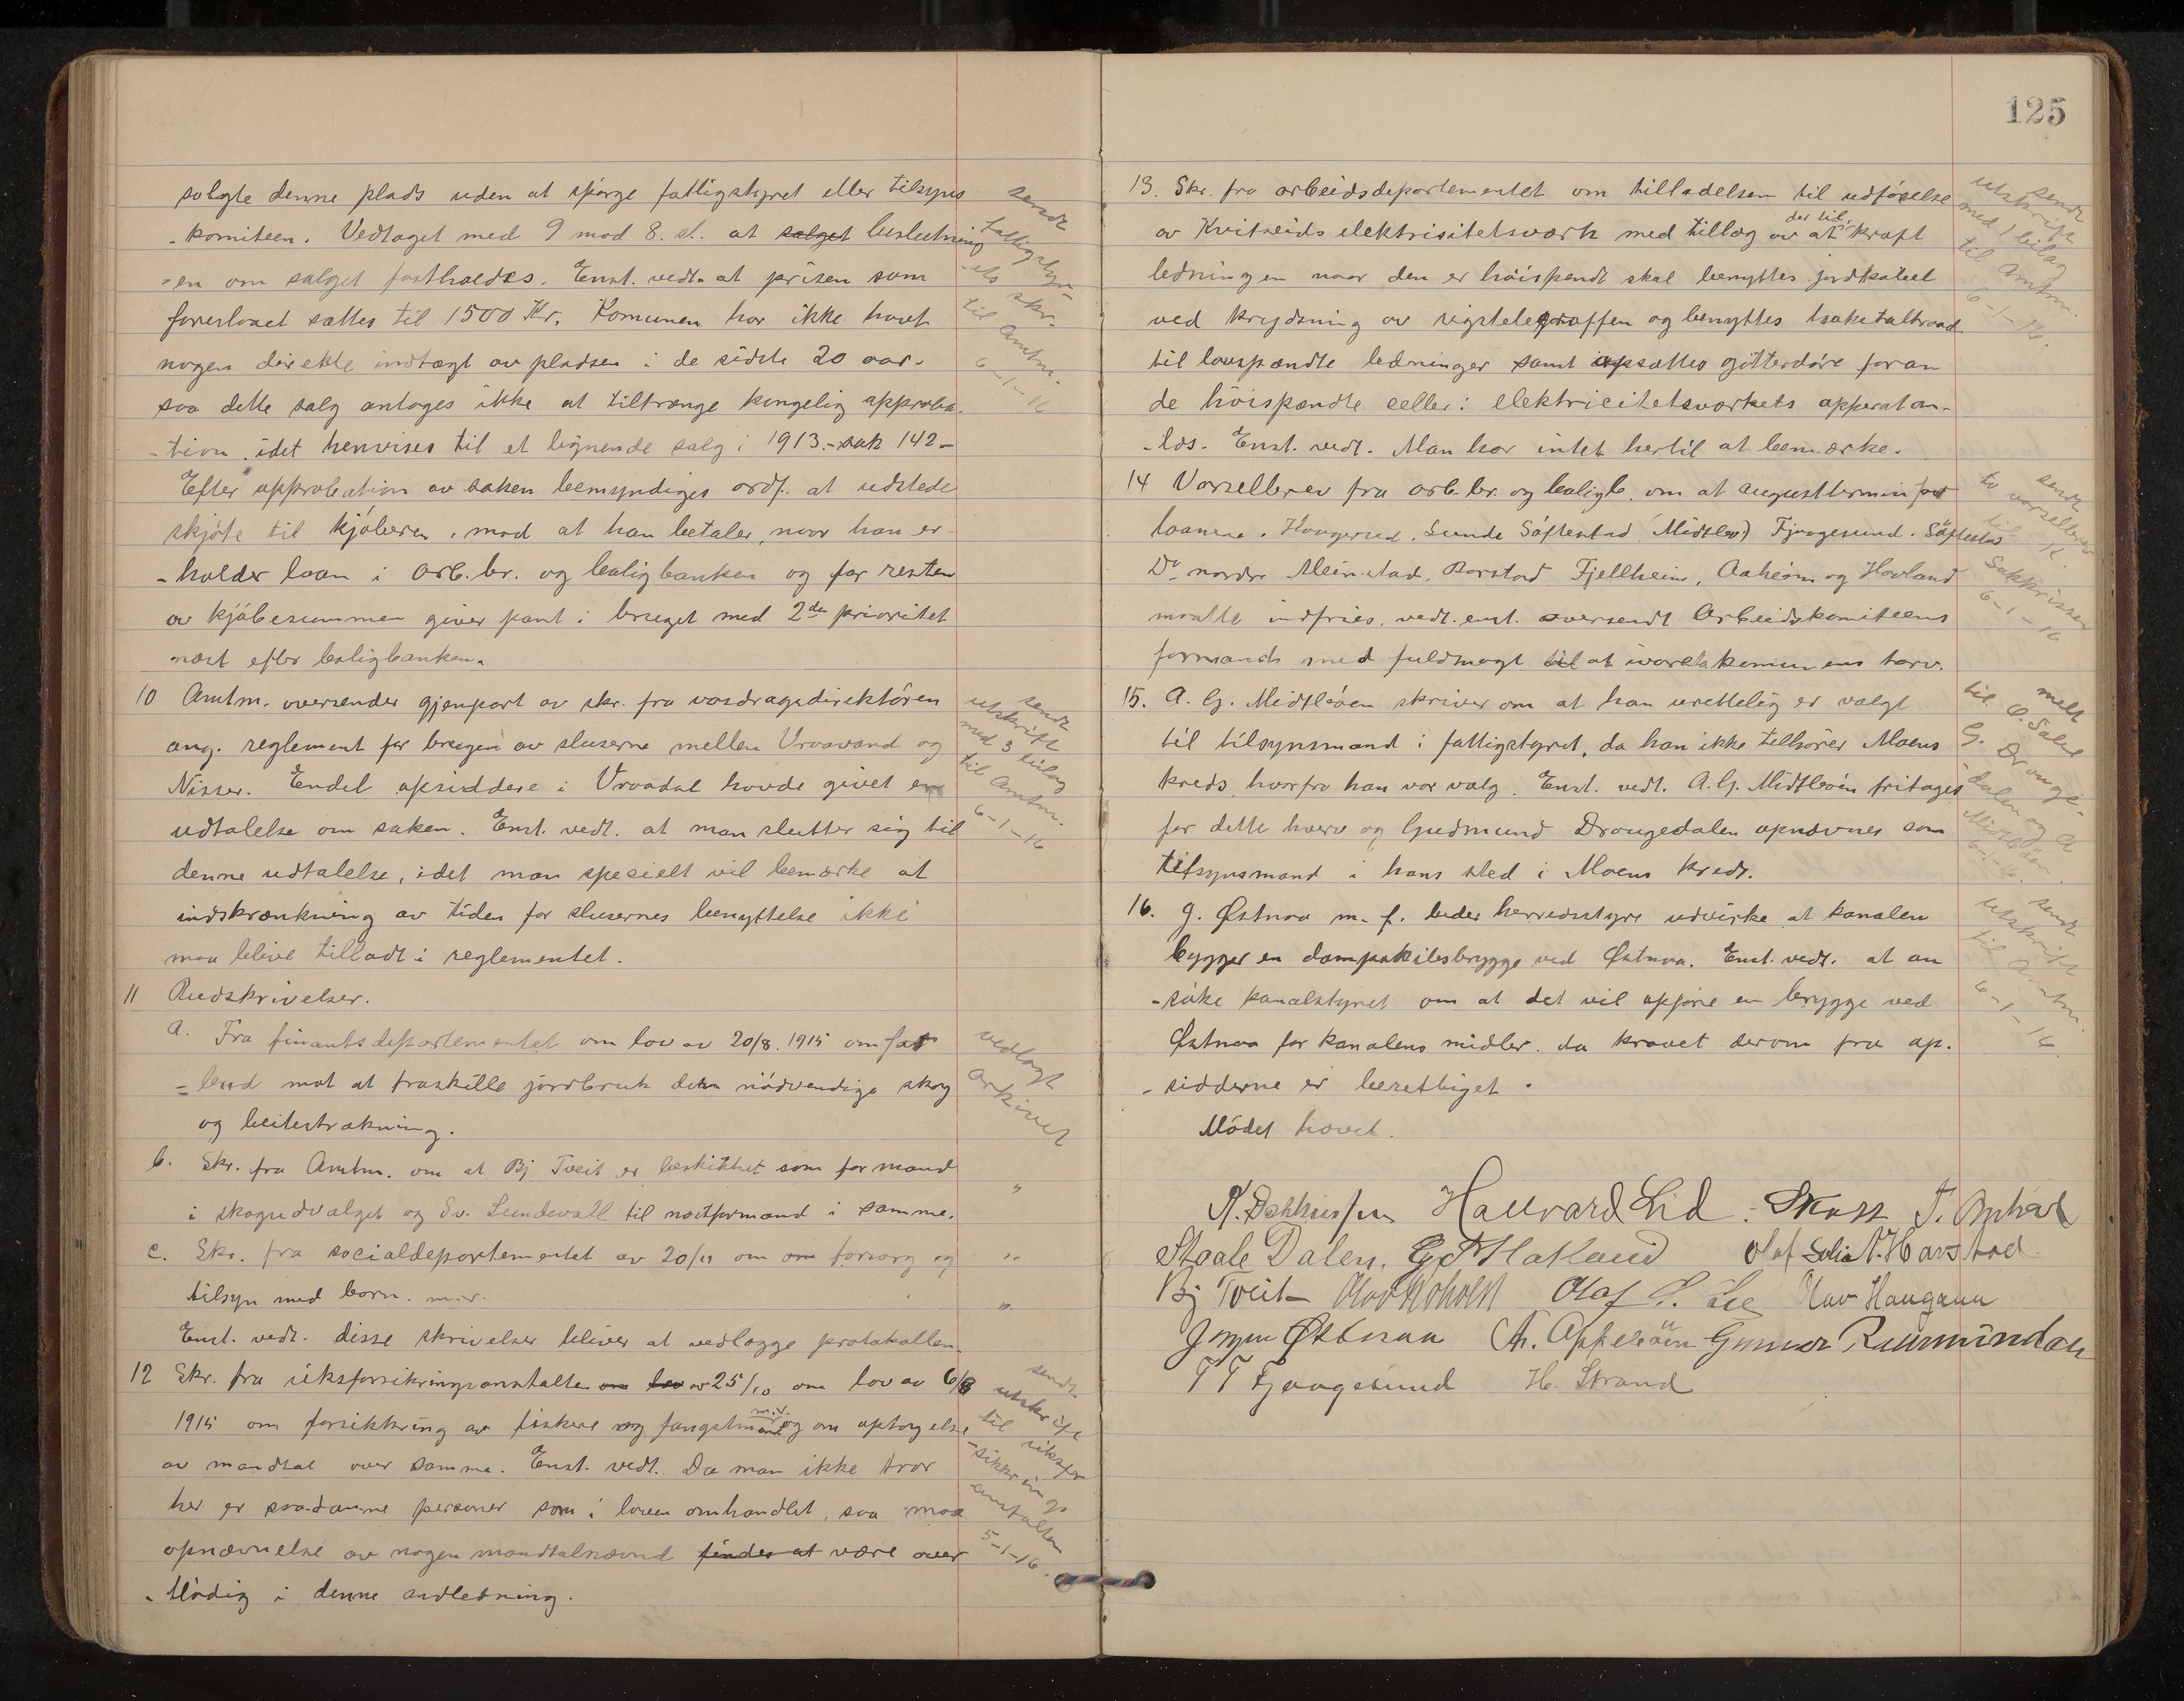 solgte denne plads uden at spørge fattigstyret eller tilsyns
- komiteen. Vedtaget med 9 mod 8. st. at salget beslutning
- en om salget fastholdes. Enst. vedt. at prisen som
foreslaaet sættes til 1500 Kr. Komunen har ikke havt
nogen direkte indtægt av pladsen i de sidste 20 aar.
saa dette salg antages ikke at tiltrænge kongelig approba-
- tion. idet henvises til et lignende salg i 1913.- sak 142 -
Efter approbation av saken bemyndiges ordf. at udstede
skjøte til kjøberen, mod at han betaler, naar han er-
- holder laan i Arb.br. og boligbanken og for resten
av kjøbesummen giver pant i bruget med 2den prioritet
næst efter boligbanken.
sendt
fattigstyr-
- ets skr.
til Amtm.
6-1-16
10 Amtm. oversender gjenpart av skr. fra vasdragsdirektøren
ang. reglement for brugen av sluserne mellem Vraavand og
Nisser. Endel opsiddere i Vraadal havde givet en
udtalelse om saken. Enst. vedt. at man slutter sig til
denne udtalelse, idet man specielt vil bemærke at
indskrænkning av tiden for slusernes benyttelse ikke
maa blive tilladt i reglementet.
sendt
utskrift
med 3 bilag
til Amtm.
6-1-16
11 Rudskrivelser.
a. Fra finantsdepartementet om lov av 20/8. 1915 om for
= bud mot at fraskille jordbruk den nødvendige skog
og beitestrækning.
vedlagt
arkivet
b. Skr. fra Amtm. om at Bj Tveit er beskikket som formand
i skogudvalget og Sv. Lundevall til næstformand i samme. "
c. Skr. fra socialdepartementet av 20/11 om om forsorg og "
tilsyn med born. m.v. "
Enst. vedt. disse skrivelser bliver at vedlægge protokollen.
12 Skr. fra riksforsikringsanstalten om lov av 25/10 om lov av 6/8
1915 om forsikkring av fiskere og fangstmænd m.v. og om optagelse
av mandtal over samme. Enst. vedt. Da man ikke tror
her er saadanne personer som i loven omhandlet, saa maa
opnævnelse av nogen mandtalsnævnd findes at være over
- flødig i denne anledning.
sendt
utskrift
til riksfor
- sikkrings
anstalten
5-1-16.
125
13. Skr. fra arbeidsdepartementet om tilladelsen til udførelse
av Kvitseids elektrisitetsværk med tillæg av der til at kraft
ledningen naar den er høispendt skal benyttes jordkabel
ved krydsning av rigstelegraffen og benyttes traad
til lavspændte ledninger samt opsættes gitterdøre foran
de høispændte celler i elektricitetsværkets apparatan-
- læs. Enst. vedt. Man har intet hertil at bemærke.
sendt
utskrift
med 1 bilag
til Amtm.
6-1-16.
14 Varselbrev fra arb.br. og boligb. om at augusttermin for
laanene. Haugerud, Sunde Søftestad (Midtbø) Fjaagesund. Søftestad
Do nordre Meinstad, Borstad Fjellheim, Aaheim og Hovland
maatte indfries. vedt. enst. oversendt Arbeidskomiteens
formands med fuldmagt til at ivareta komunens tarv.
sendt
to varselbrev
til K.
Sakkrissen
6-1-16
15. A. G. Midtbøen skriver om at han urettelig er valgt
til tilsynsmand i fattigstyret, da han ikke tilhører Moens
kreds, hvorfra han var valg. Enst. vedt. A.G. Midtbøen fritages
for dette hverv og Gudmund Draugedalen opnævnes som
tilsynsmand i hans sted i Moens kreds.
melt
til O. Sale
G. Drauge-
- dalen og A
Midtbøen
6-1-16.
16. J. Østnaa m. f. beder herredsstyre udvirke at kanalen
bygger en dampskibsbrygge ved Østnaa. Enst. vedt. at an
- søke kanalstyret om at det vil opføre en brygge ved
Østnaa for kanalens midler. da kravet derom fra op-
- sidderne er berettiget.
sendt
utskrift
til Amtm.
6-1-16.
Mødet hævet.
Hallvard Lid
Staale Dalen. Hatland Olaf N. Harstad
Bj Tveit Olaf S. Lie Olav Haugann
Jørgen Østenaa Appelöen Gunnar
T T Fjaagesund H. Strand